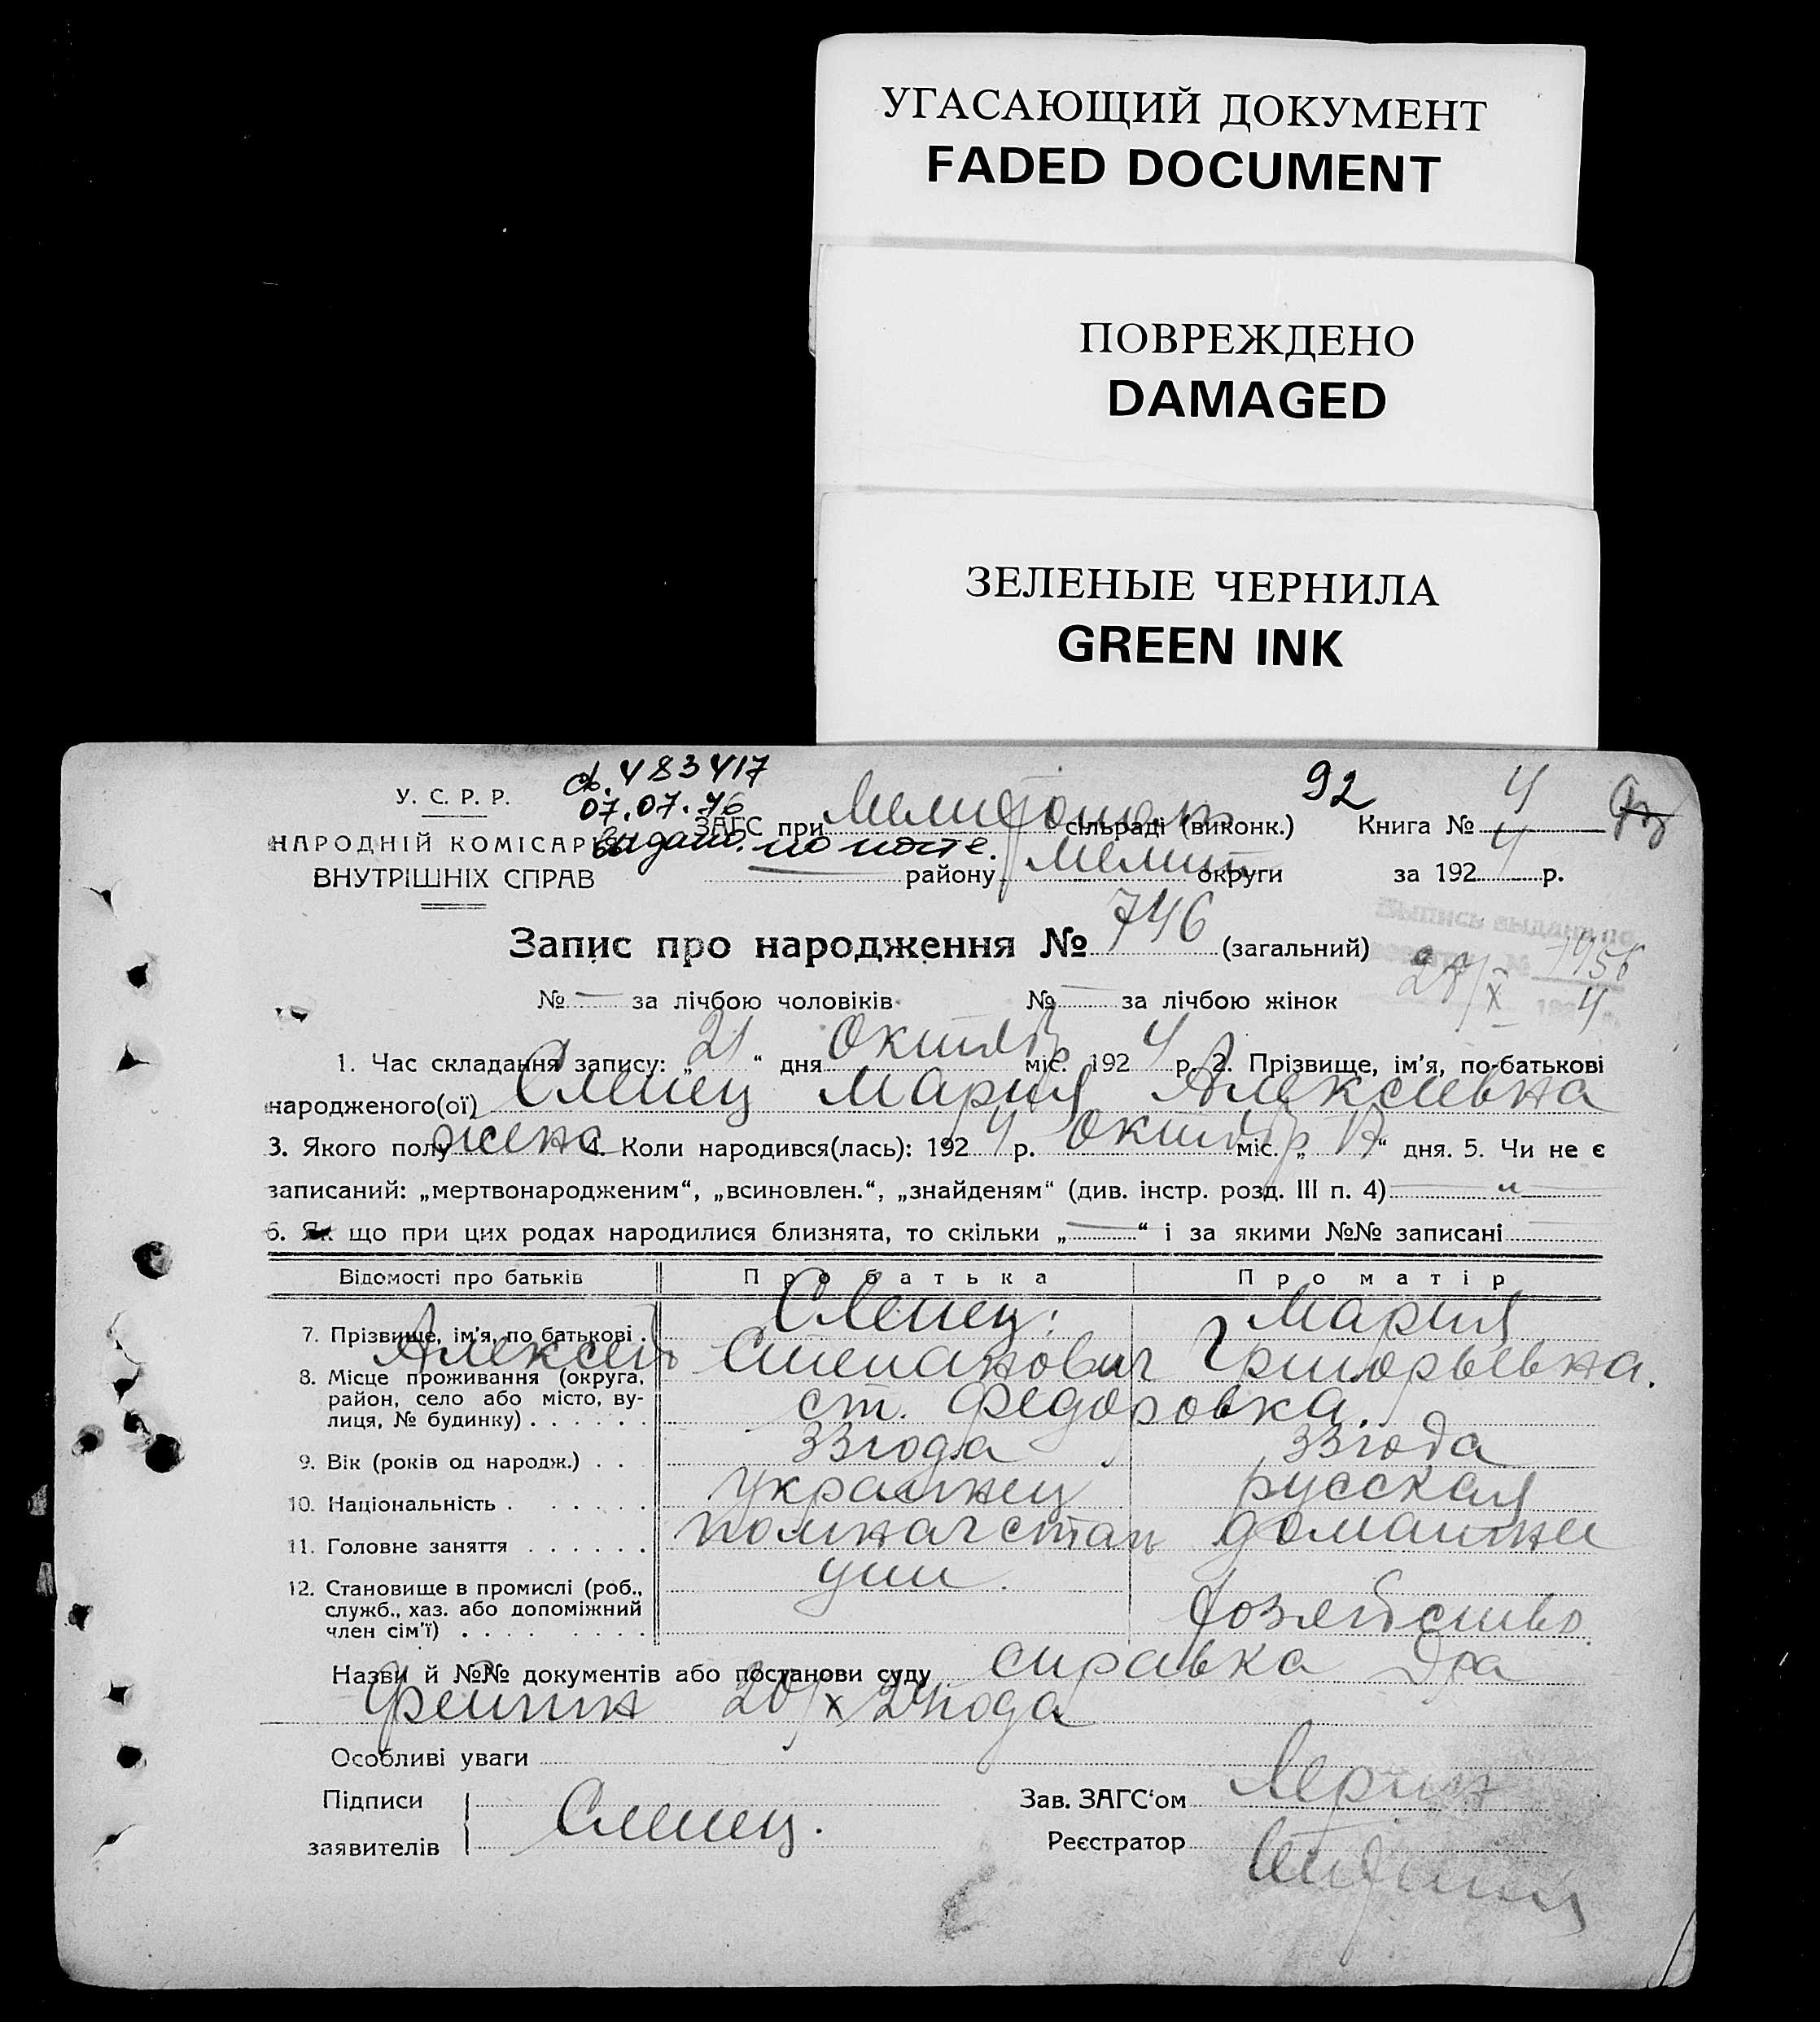 УГАСАЮЩИЙ ДОКУМЕНТ
FADED DOCUMENT
ПОВРЕЖДЕНО
DAMAGED
ЗЕЛЕНЫЕ ЧЕРНИЛА
GREEN INK
У. С. Р. Р.
НАРОДНІЙ КОМІСАР
ВНУТРІШНІХ СПРАВ
св. 483417
07.07.76
выдано. по почте.
92
ЗАГС при сільраді (виконк.) Книга № 4
району Мелит округи за 1924 р.
Запис про народження № 746 (загальний)
Выпись выдана по
№ 1956
28/X 4
№ — за лічбою чоловіків № — за лічбою жінок
1. Час складання запису: „21“ дня Октябр міс. 1924 р. 2. Прізвище, ім'я, по-батькові
народженого(ої) Слепец Мария Алексеевна
3. Якого полу жена 4. Коли народився(лась): 1924 р. Октябр міс. „17“ дня. 5. Чи не є
записаний: „мертвонародженим“, „всиновлен.“, „знайденям“ (див. інстр. розд. III п. 4) — „ —
6. Як що при цих родах народилися близнята, то скільки „—“ і за якими №№ записані
Відомості про батьків Про батька Про матір
7. Прізвище, ім'я, по батькові . Слепец: Мария
Алексей Степанович Григорьевна.
8. Місце проживання (округа,
район, село або місто, ву-
лиця, № будинку) . . . . . . ст. Федоровка.
9. Вік (років од народж.) . . . 33 года 33 года
10. Національність . . . . . . украинец русская
11. Головне заняття . . . . . . помнач стан домашнее
12. Становище в промислі (роб., ции.
служб., хаз. або допоміжний хозяйство.
член сім'ї) . . . . . . . . .
Назви й №№ документів або постанови суду справка Дра
20/X 24 года
Особливі уваги
Підписи
Зав. ЗАГС'ом
заявителів Слепец.
Реєстратор